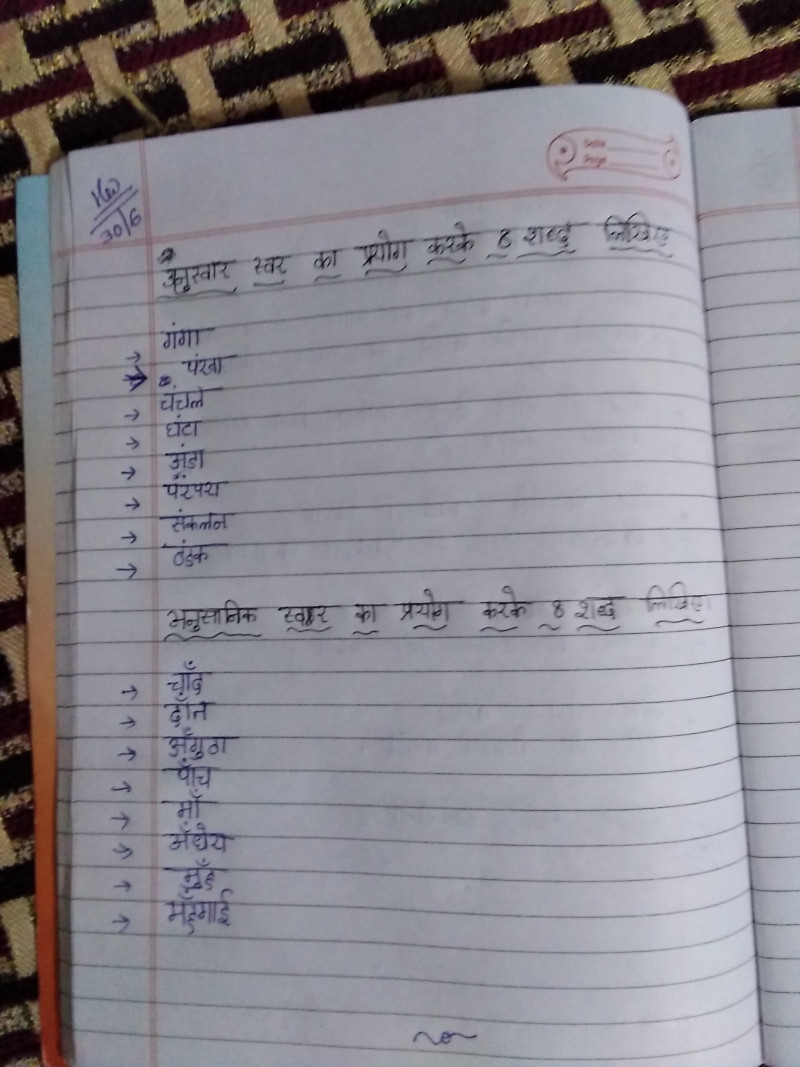 Date
Page
HW
30/6
अनुस्वार स्वर का प्रयोग करके 8 शब्द लिखिए
→ गंगा
→ पंखा
→ चंचल
→ घंटा
→ अंडा
→ पंरपरा
→ संकलन
→ ठंडक
अनुसानिक स्वर का प्रयोग करके 8 शब्द लिखिए।
→ चाँद
→ दाँत
→ अँगुठा
→ पाँच
→ माँ
→ अँधेरा
→ मुँह
→ मँहगाई